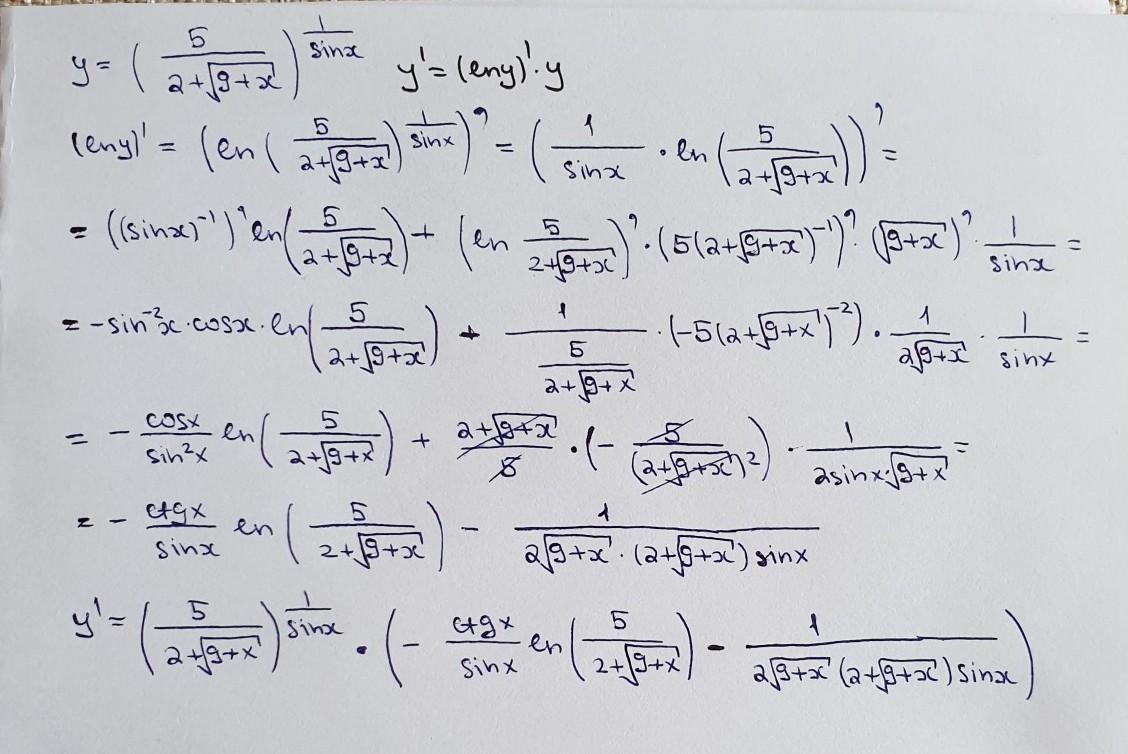 y = (5/(2+√(9+x)))^(1/sinx)   y' = (lny)'·y
(lny)' = (ln(5/(2+√(9+x)))^(1/sinx))' = (1/sinx · ln(5/(2+√(9+x))))' =
= ((sinx)⁻¹)' ln(5/(2+√(9+x))) + (ln 5/(2+√(9+x)))' · (5(2+√(9+x))⁻¹)' · (√(9+x))' · 1/sinx =
= -sin⁻²x · cosx · ln(5/(2+√(9+x))) + 1/(5/(2+√(9+x))) · (-5(2+√(9+x))⁻²) · 1/(2√(9+x)) · 1/sinx =
= - cosx/sin²x ln(5/(2+√(9+x))) + (2+√(9+x))/5 · (- 5/(2+√(9+x))²) · 1/(2sinx·√(9+x)) =
= - ctgx/sinx ln(5/(2+√(9+x))) - 1/(2√(9+x) · (2+√(9+x)) sinx)
y' = (5/(2+√(9+x)))^(1/sinx) · (- ctgx/sinx ln(5/(2+√(9+x))) - 1/(2√(9+x) (2+√(9+x)) sinx))